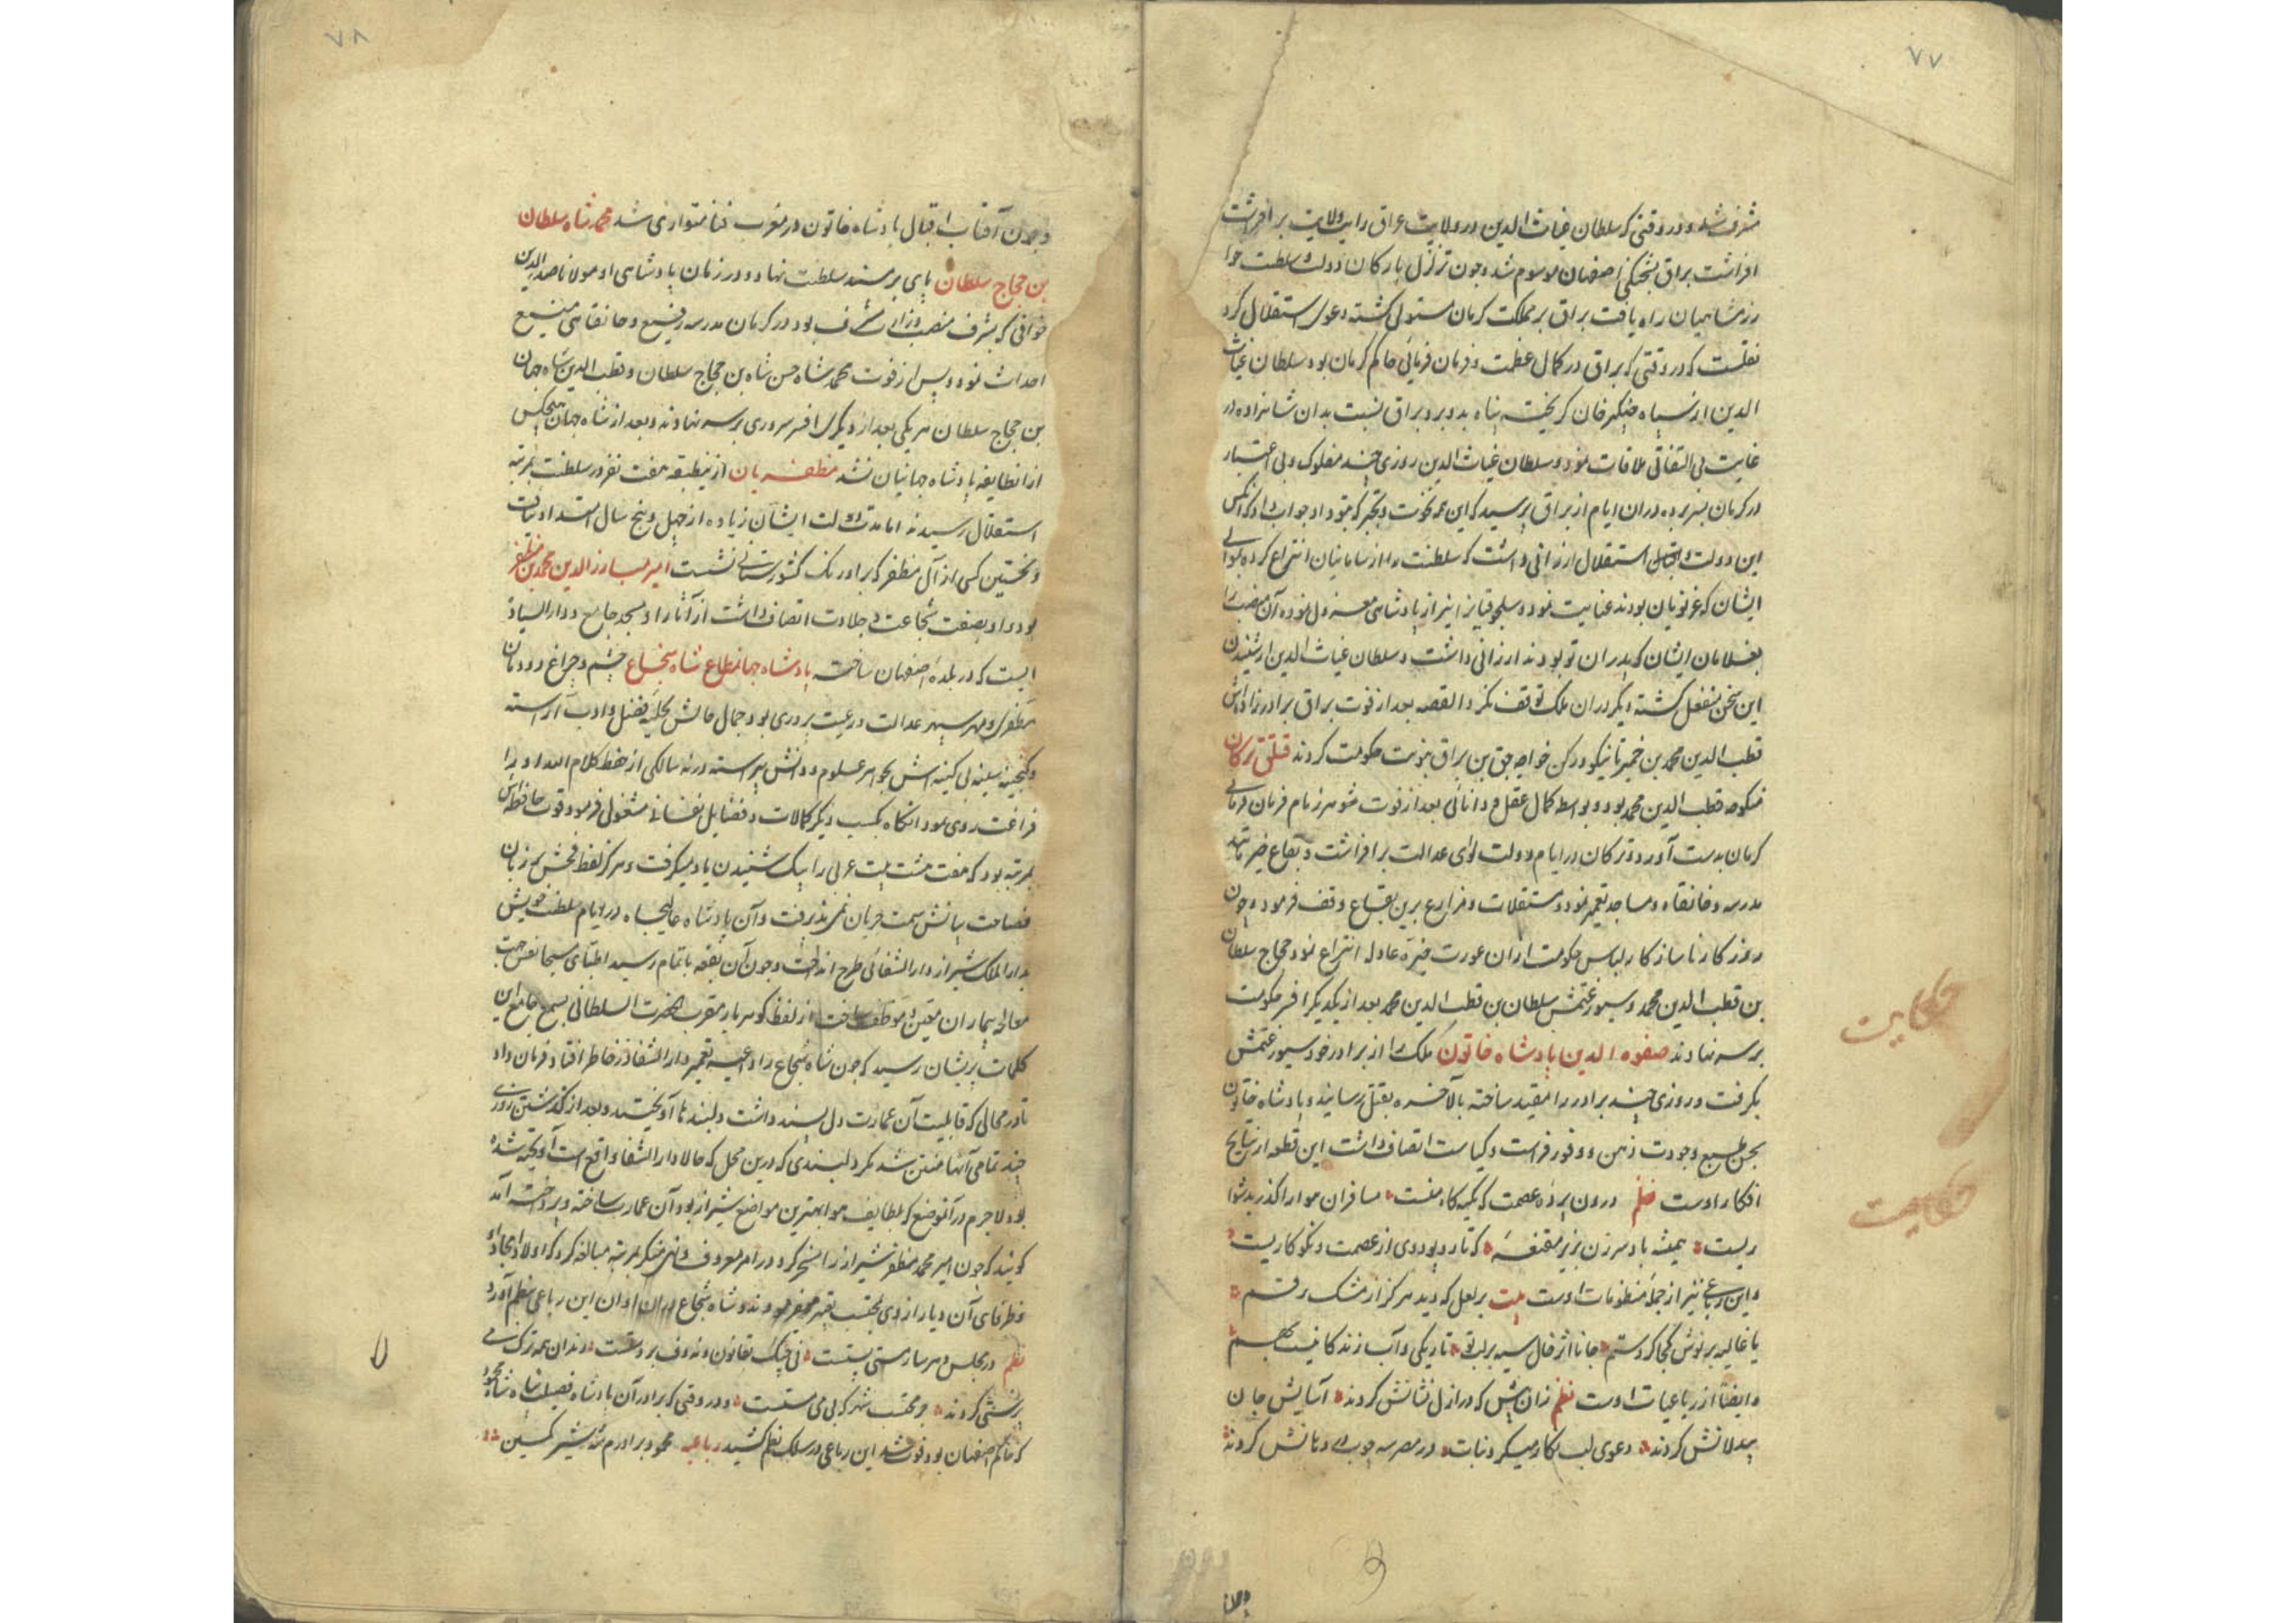 ۷۷
مشرف شد و در وقتی که سلطان غیاث الدین در ولایت عراق رایت ولایت بر افراشت
افراشت براق بشحنکی اصفهان موسوم شد و چون تزلزل بارکان دولت سلطنت خوا
رزمشاهیان راه یافت براق بر مملکت کرمان مستولی کشته دعوی استقلال کرد
نقلست که در وقتی که براق در کمال عظمت و فرمان فرمائی حاکم کرمان بود سلطان غیاث
الدین از سپاه چنکیز خان کریخته پناه بدو برد براق نسبت بدان شاهزاده در
غایت بی التفاتی ملاقات نمود و سلطان غیاث الدین روزی چند مفلوک و بی اعتبار
در کرمان بسر برده در ان ایام از براق پرسید که این همه نخوت و تجبر که بتو داد جواب داد که آنکس
این دولت استقلال ارزانی داشت که سلطنت را از سامانیان انتزاع کرده بموالی
ایشان که غزنویان بودند عنایت نمود و سلجوقیانرا نیز از پادشاهی معزول نموده آن منصب را
بغلامان ایشان که پدران تو بودند ارزانی داشت و سلطان غیاث الدین از شنیدن
این سخن منفعل کشته دیکر در ان ملک توقف نکرد القصه بعد از فوت براق برادرزاده اش
قطب الدین محمد بن خمیر تاینکو و رکن خواجه جق بن براق بنوبت حکومت کردند قتلق ترکان
منکوحه قطب الدین محمد بود و بواسطه کمال عقل و دانائی بعد از فوت شوهر زمام فرمان فرمائی
کرمان بدست آورد و ترکان در ایام دولت لوای عدالت بر افراشت و بقاع خیر مانند
مدرسه و خانقاه و مساجد تعمیر نمود و مستقلات و مزارع برین بقاع وقف فرمود و چون
روزکار ناسازکار لباس حکومت از ان عورت خیره عادله انتزاع نمود حجاج سلطان
بن قطب الدین محمد و سیورغتمش سلطان بن قطب الدین محمد بعد از یکدیکر افسر حکومت
بر سر نهادند صفوه الدین پادشاه خاتون ملک را از برادر خود سیورغتمش
بکرفت و روزی چند برادر را مقید ساخته بالاخره بقتل رسانید و پادشاه خاتون
بحسن طبع وجودت ذهن و وفور فراست و کیاست اتصاف داشت این قطعه از نتایج
افکار اوست نظم درون پرده عصمت که تکیه کاه منست مسافران هوا را کذر بدشوا
ریست همیشه باد سر زن بزیر مقنعه که تار و پود وی از عصمت و نکوکاریست
و این رباعی نیز از جمله منظومات اوست بیت بر لعل که دید هرکز از مشک رقم
یا غالیه بر نوش کجا کرد ستم جانا اثر خال سیه بر لب تو تاریکی و آب زندکانیست بهم
و ایضا از رباعیات اوست نظم زان پیش که در ازل نشانش کردند آسایش جان
بیدلانش کردند دعوی لب نکار میکرد نبات در مصر سه چوب در دهانش کردند
حکایت
حکایت
و چون
۷۸
و چون آفتاب اقبال پادشاه خاتون در مغرب فنا متواری شد محمد شاه سلطان
بن حجاج سلطان پای بر مسند سلطنت نهاد و در زمان پادشاهی او مولانا صدر الدین
خوافی که بشرف منصب وزارت مشرف بود در کرمان مدرسه رفیع و خانقاهی منیع
احداث نمود و پس از فوت محمد شاه حسن شاه بن حجاج سلطان و قطب الدین شاه جهان
بن حجاج سلطان هر یکی بعد از دیکری افسر سروری بر سر نهادند و بعد از شاه جهان هیچکس
از انطایفه پادشاه جهانیان نشد مظفریان ازینطبقه هفت نفر در سلطنت بمرتبه
استقلال رسیدند اما مدت دولت ایشان زیاده از چهل و پنج سال امتداد نیافت
و نخستین کسی از آل مظفر که بر اورنک کشورستانی نشست امیر مبارز الدین محمد بن مظفر
بود و او بصفت شجاعت و جلادت اتصاف داشت از آثار او مسجد جامع و دار السیاد
ایست که در بلده اصفهان ساخته پادشاه جهانمطاع شاه شجاع چشم و چراغ دودمان
مظفری و مهر سپهر عدالت و رعیت پروری بود جمال حالش بحلیه فضل و ادب آراسته
و کنجینه سینه بی کینه اش بجواهر علوم و دانش پیراسته در نه سالکی از حفظ کلام الله او را
فراغت روی نمود آنکاه بکسب دیکر کمالات و فضایل نفسانی مشغولی فرمود قوت حافظه اش
بمرتبه بود که هفت هشت بیت عربی را بیک شنیدن یاد میکرفت و هرکز لفظ فحش بر زبان
فصاحت بیانش سمت جریان نمی پذیرفت و آن پادشاه عالیجاه در ایام سلطنت خویش
بدار الملک شیراز دار الشفائی طرح انداخت و چون آن بقعه باتمام رسید اطبای مسیحا نفس جهت
معالجه بیماران معین و موظف ساخت از لفظ کوهربار مقرب الحضرت السلطانی بسمع جامع این
کلمات پریشان رسید که چون شاه شجاع را داعیه تعمیر دار الشفا در خاطر افتاد فرمان داد
تا در محالی که قابلیت آن عمارت دل پسند داشت دلبندها آویختند و بعد از کذشتن روزی
چند تمامی آنها متعفن شد مکر دلبندی که درین محل که حالا دار الشفا واقع است آویخته شده
بود لاجرم در آنموضع که بلطایف هوا بهترین مواضع شیراز بود آن عمارت ساخته و پرداخته آمد
کویند که چون امیر محمد مظفر شیراز را مسخر کرد در امر معروف و نهی منکر بمرتبه مبالغه کرد که اولاد امجاد او
و ظرفای آن دیار از وی بمحتسب تعبیر میفرمودند و شاه شجاع در ان اوان این رباعی بنظم آورد
نظم در مجلس دهر ساز مستی پستست نی چنک بقانون و نه دف بر دستست رندان همه ترک می
پرستی کردند جز محتسب شهر که بی می مستست و در وقتی که برادر آن پادشاه فضیلت پناه شاه محمود
که حاکم اصفهان بود فوت شد این رباعی در سلک نظم کشید رباعیه محمود برادرم شه شیر کمین